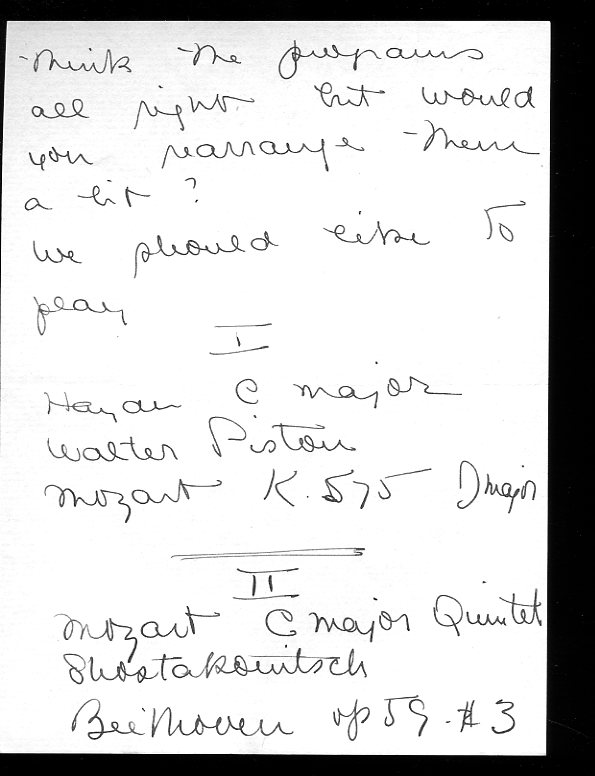 think the programs
all right but would
you rearrange them
a bit?
We should like to
play
I
Haydn C major
Walter Piston
Mozart K. 575 D major
II
Mozart C major Quintet
Shostakovitsch
Beethoven op 59. #3